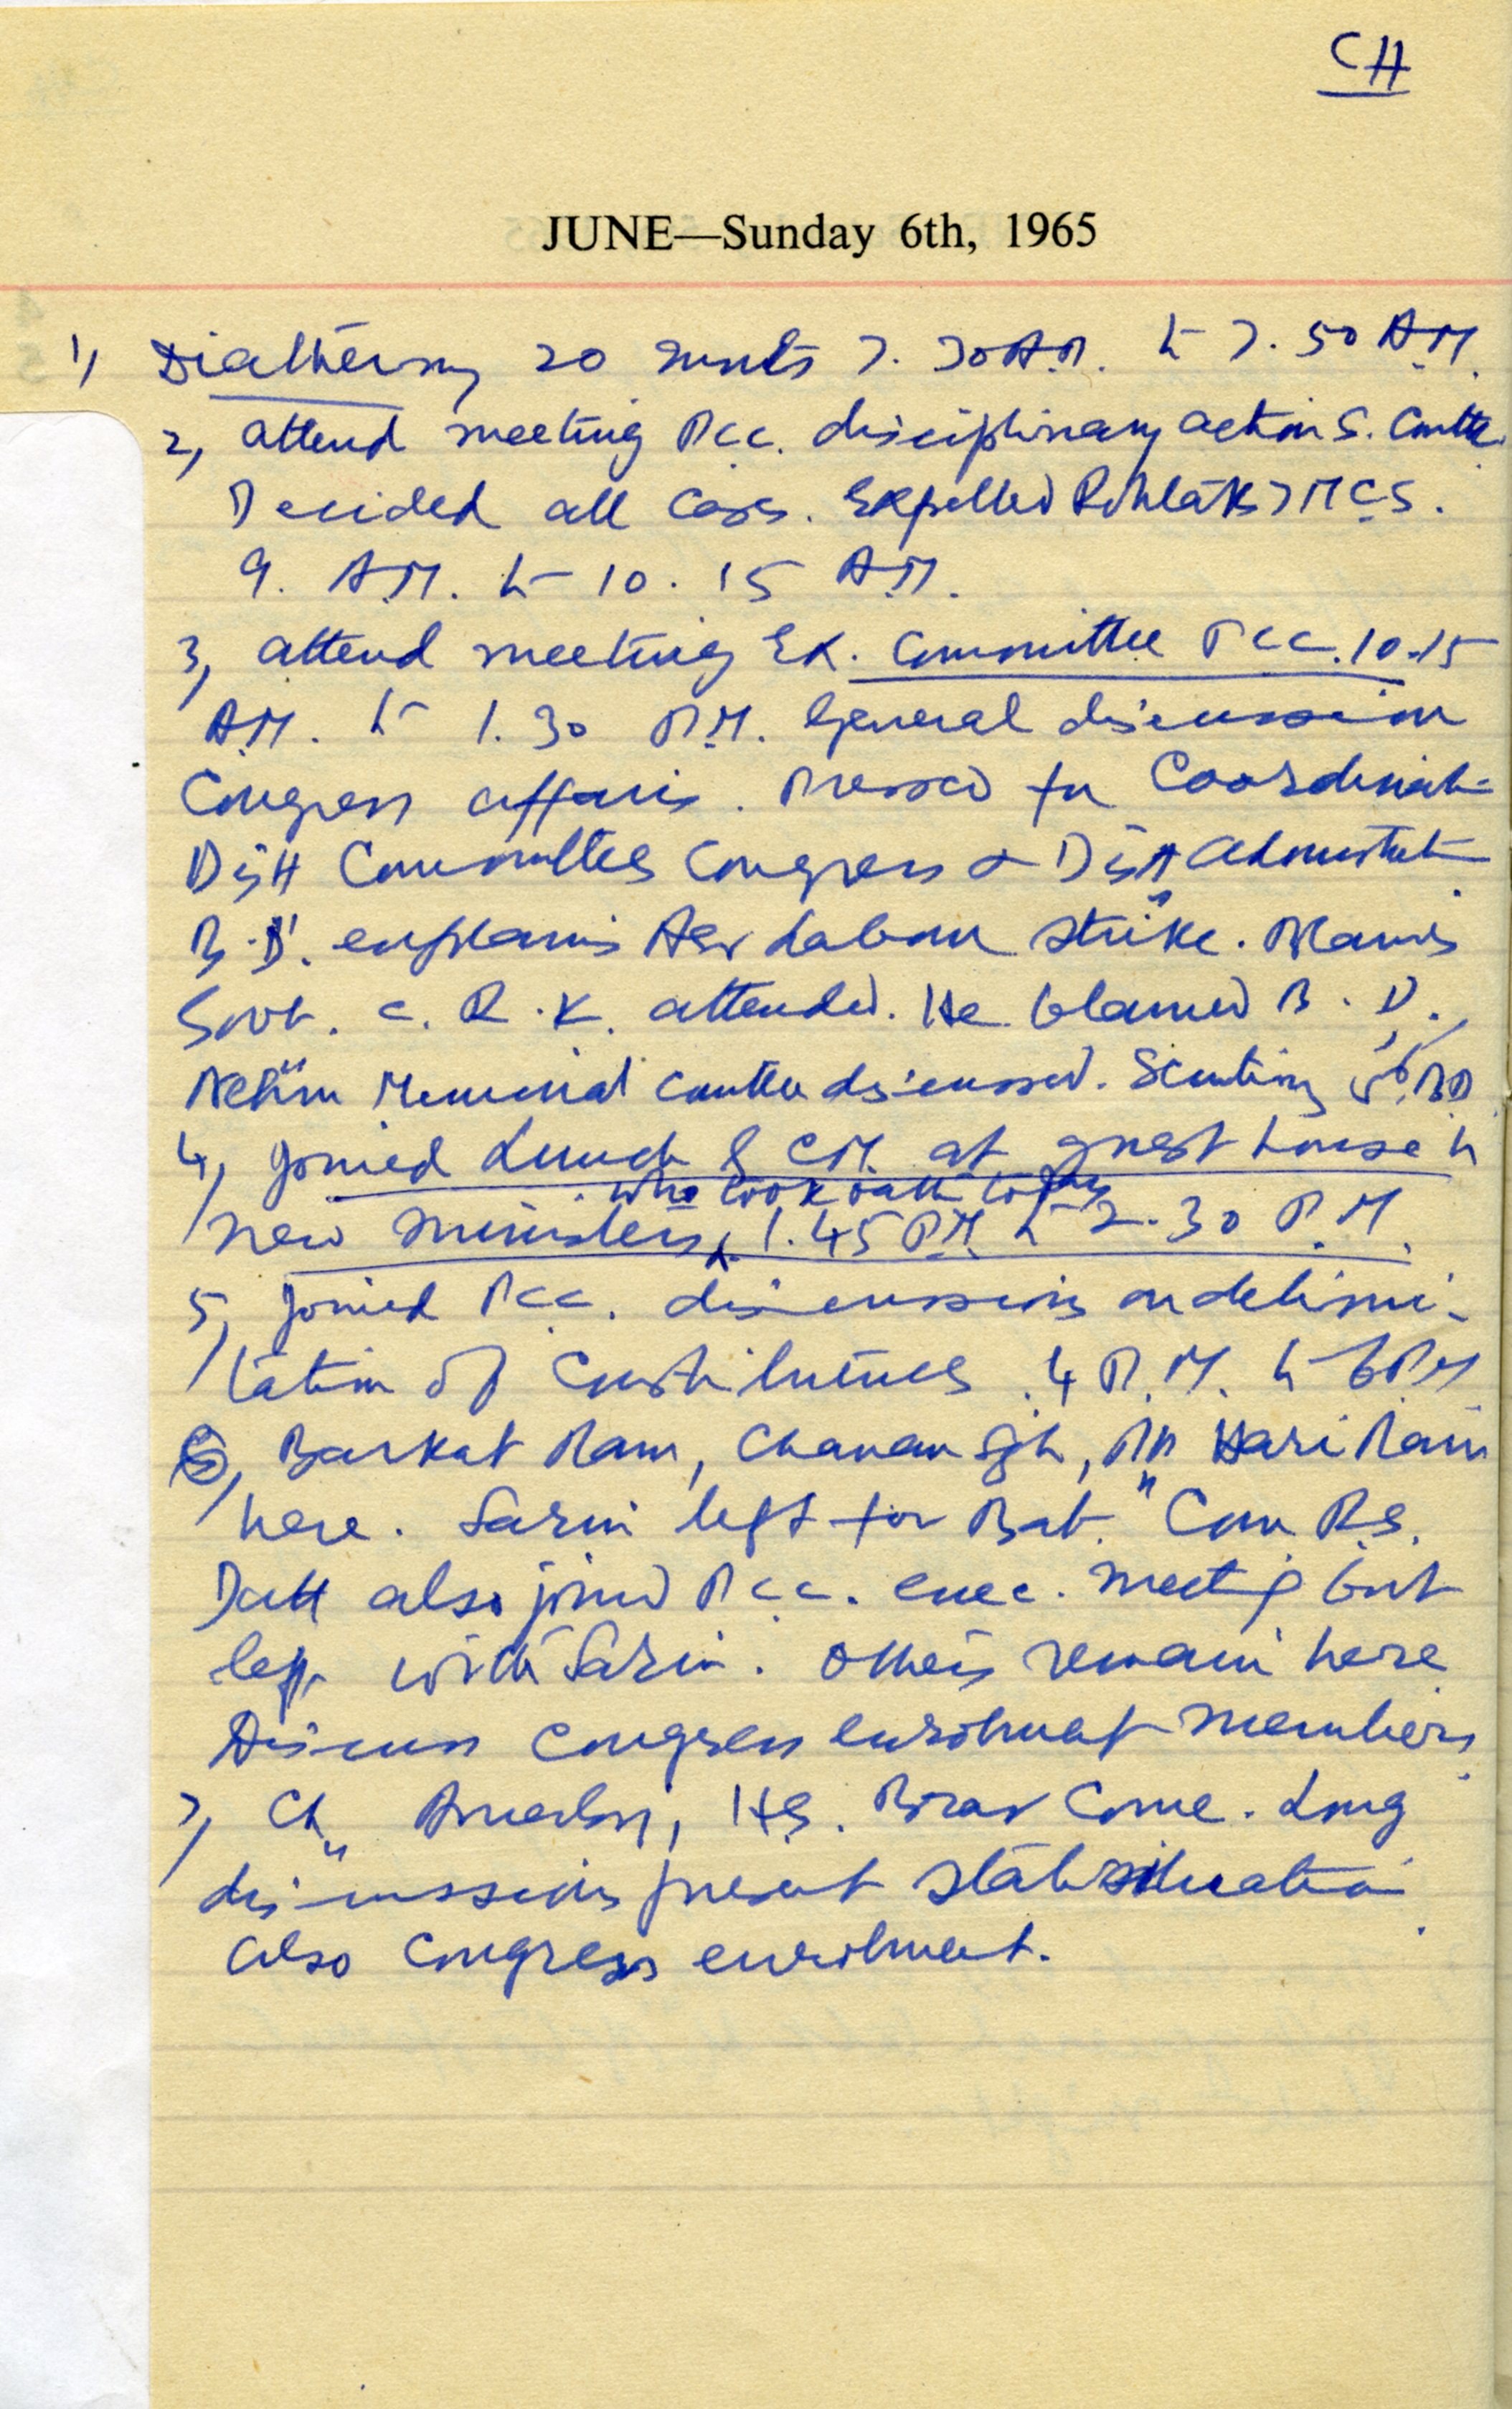 CH
JUNE—Sunday 6th, 1965
1, Diathermy 20 7.30 A.M. to 7.50 A.M.
2, attend meeting P.c.c. disciplinary action S. Cmttee
Decided all cases. Expelled Rohtaks 7 MCS.
9. A.M. to 10.15 A.M.
3, attend meeting Ex. Committee P.c.c. 10.15
A.M. to 1.30 P.M. General discussion
Congress affairs. Pressed for Coordinat-
Distt Committees Congress & Distt
B.D. explains labour strike. Blames
Govt. C.R.K. attended. He blamed B.D.
Nehru Memorial cmttee discussed. Scrutiny
4, joined Lunch & CM. at guest house to
who took oath today
new ministers 1.45 P.M. to 2.30 P.M.
5, joined P.c.c. discussions on delimi-
tation of Constituencies. 4 P.M. to 6 PM
6, Barkat Ram, Chanan Sgh, Hari Ram
here. Sarin left for Bat. Com R.S.
Datt also joined P.c.c. exec. meeting but
left with Sarin. Others remain here
Discuss Congress enrolment members
7, Ch. H.S. Brar Come. Long
discussions present state situation
also Congress enrolment.